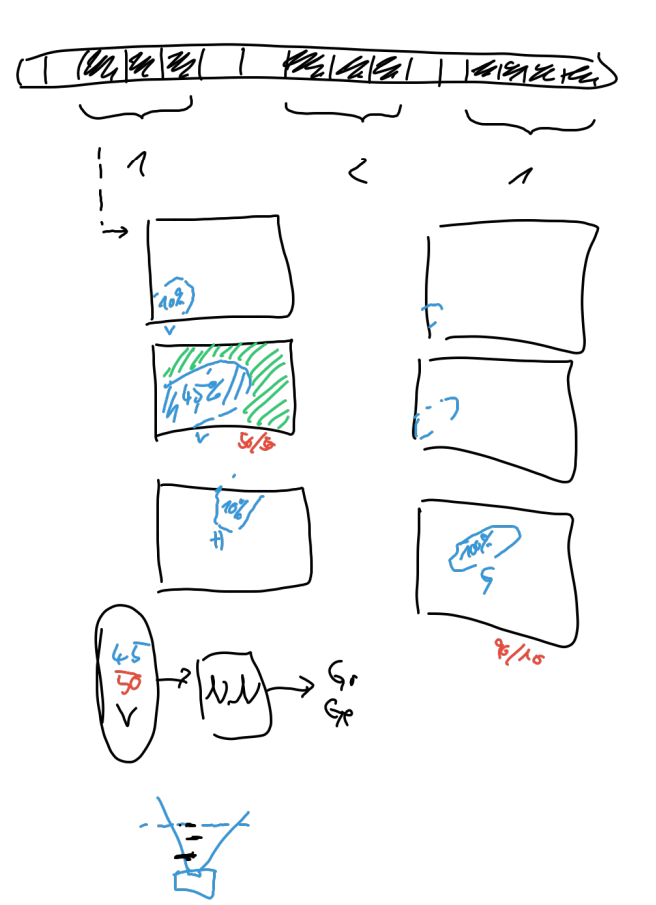 1 2 1
10%
V
45%
V 50/50
10%
H
100%
G
90/10
45
50
V
N.N
Gr
Ge